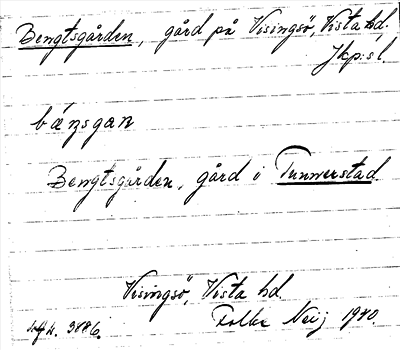 Bengtsgården, gård på Visingsö, Vista hd,
Jkp:s l
bæŋsgaɳ
Bengtsgården, gård i Tunnerstad
Visingsö, Vista hd.
3886. Folke Neij 1980.